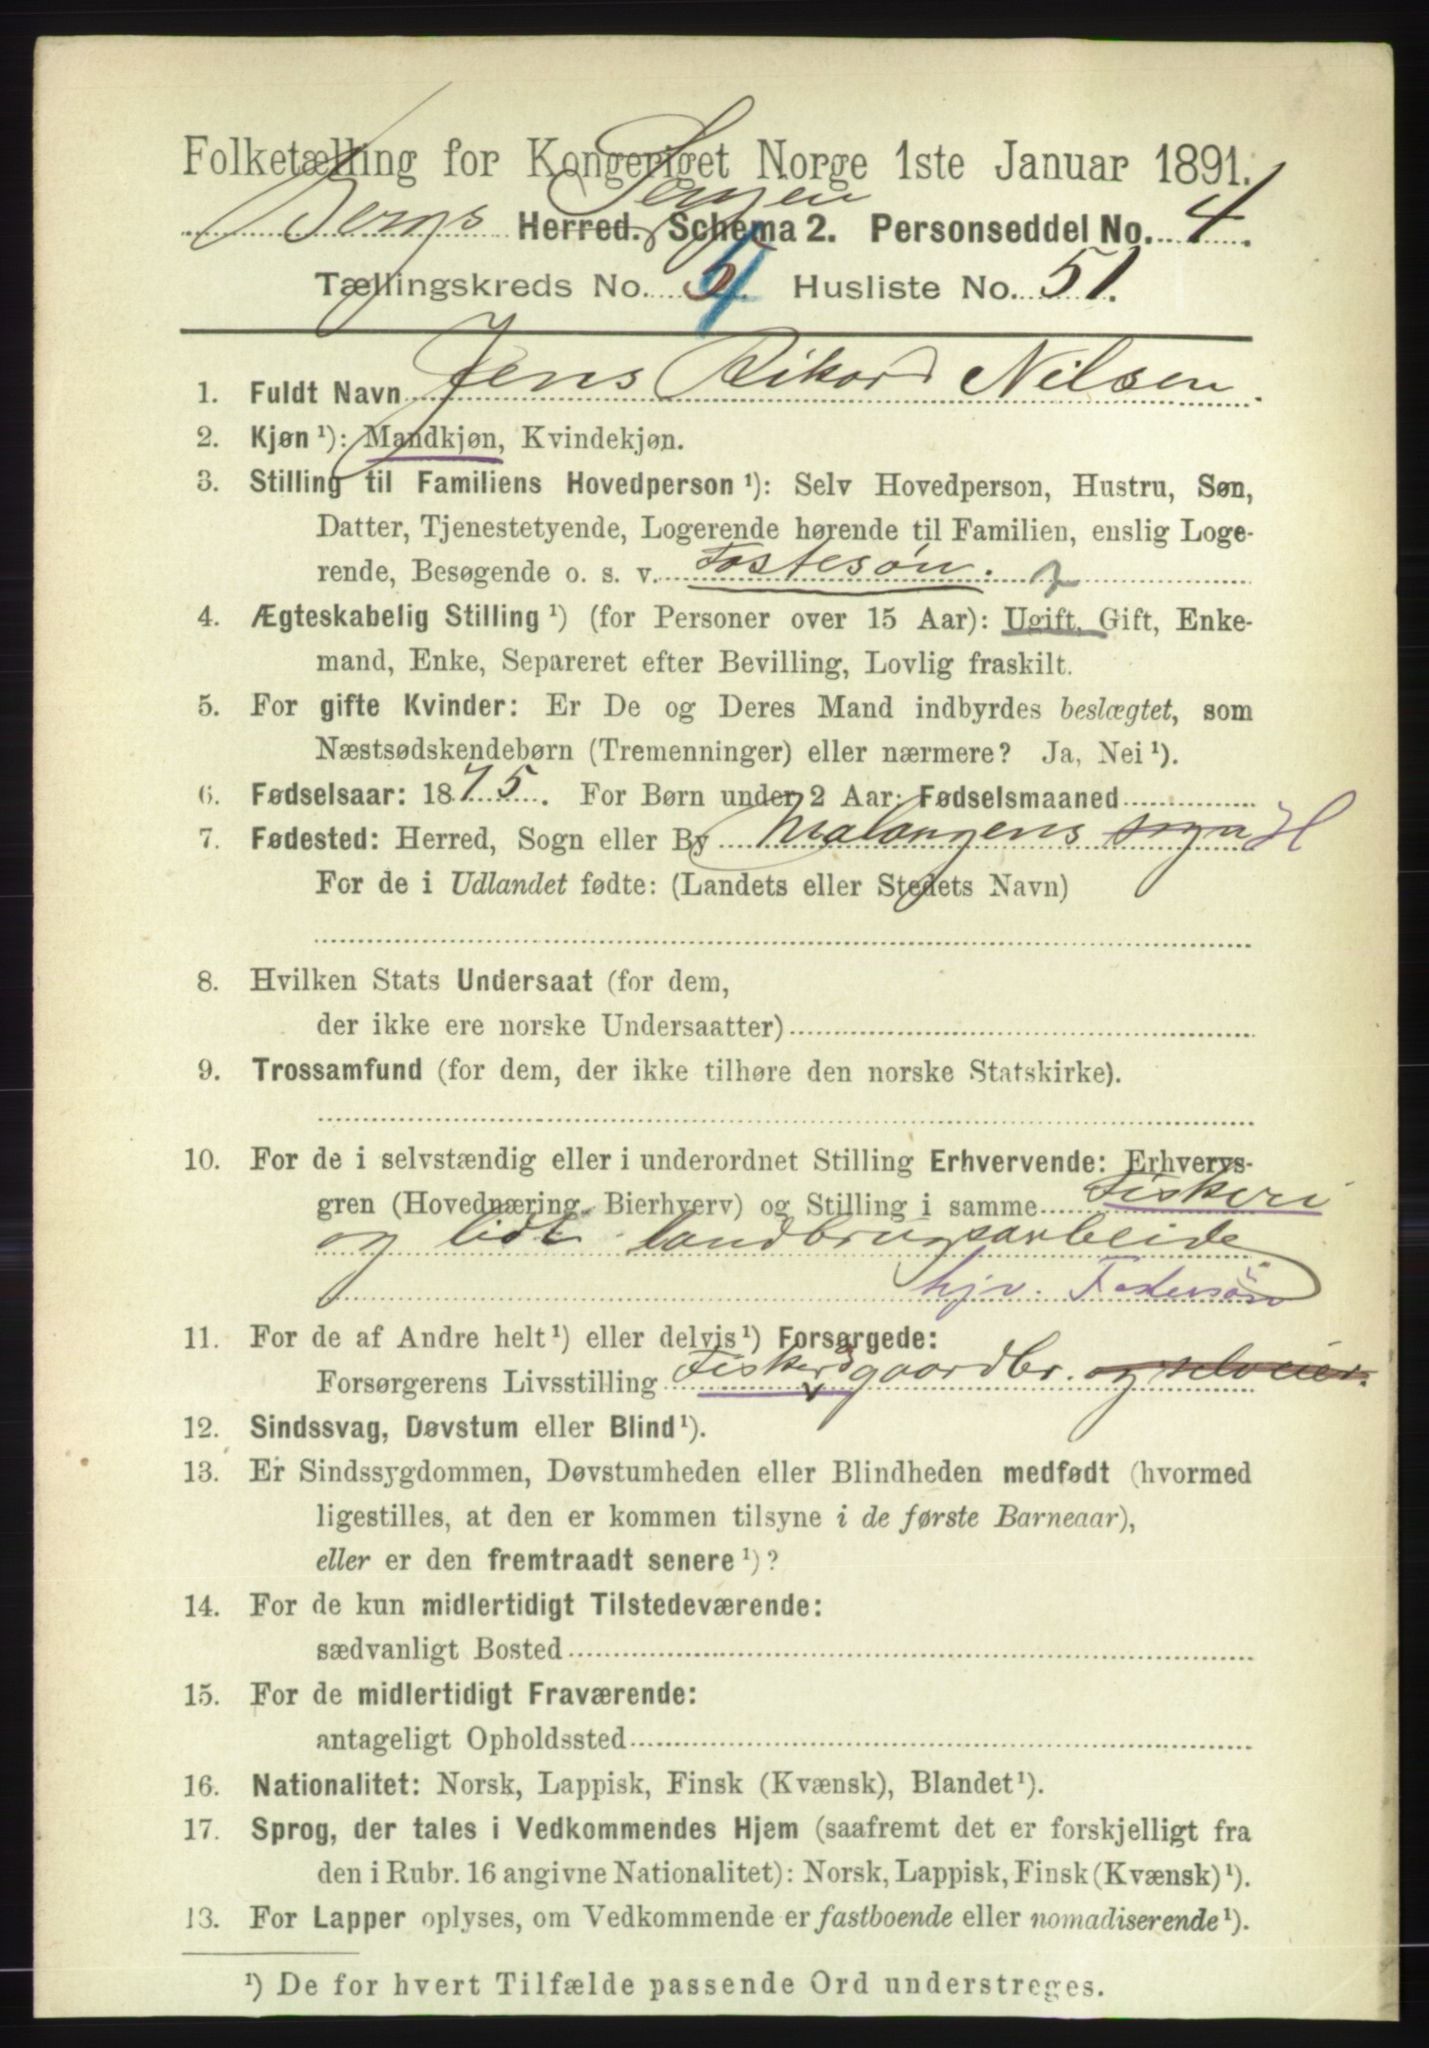 Folketælling for Kongeriget Norge 1ste Januar 1891.
Bergs Herred. Schema 2. Personseddel No. 4.
Tællingskreds No. 4 Husliste No. 51.
1. Fuldt Navn Jens Rikard Nilsen.
2. Kjøn ¹): Mandkjøn, Kvindekjøn.
3. Stilling til Familiens Hovedperson ¹): Selv Hovedperson, Hustru, Søn,
Datter, Tjenestetyende, Logerende hørende til Familien, enslig Loge-
rende, Besøgende o. s. v. Fostesøn.
4. Ægteskabelig Stilling ¹) (for Personer over 15 Aar): Ugift, Gift, Enke-
mand, Enke, Separeret efter Bevilling, Lovlig fraskilt.
5. For gifte Kvinder: Er De og Deres Mand indbyrdes beslægtet, som
Næstsødskendebørn (Tremenninger) eller nærmere? Ja, Nei ¹).
6. Fødselsaar: 1875. For Børn under 2 Aar: Fødselsmaaned
7. Fødested: Herred, Sogn eller By Malangens sogn H
For de i Udlandet fødte: (Landets eller Stedets Navn)
8. Hvilken Stats Undersaat (for dem,
der ikke ere norske Undersaatter)
9. Trossamfund (for dem, der ikke tilhøre den norske Statskirke).
10. For de i selvstændig eller i underordnet Stilling Erhvervende: Erhvervs-
gren (Hovednæring, Bierhverv) og Stilling i samme Fiskeri
og lidt landbrugsarbeide
hjv. Fostersøn
11. For de af Andre helt ¹) eller delvis ¹) Forsørgede:
Forsørgerens Livsstilling Fisker gaardbr. og selveier.
12. Sindssvag, Døvstum eller Blind ¹).
13. Er Sindssygdommen, Døvstumheden eller Blindheden medfødt (hvormed
ligestilles, at den er kommen tilsyne i de første Barneaar),
eller er den fremtraadt senere ¹)?
14. For de kun midlertidigt Tilstedeværende:
sædvanligt Bosted
15. For de midlertidigt Fraværende:
antageligt Opholdssted
16. Nationalitet: Norsk, Lappisk, Finsk (Kvænsk), Blandet ¹).
17. Sprog, der tales i Vedkommendes Hjem (saafremt det er forskjelligt fra
den i Rubr. 16 angivne Nationalitet): Norsk, Lappisk, Finsk (Kvænsk) ¹).
13. For Lapper oplyses, om Vedkommende er fastboende eller nomadiserende ¹).
¹) De for hvert Tilfælde passende Ord understreges.